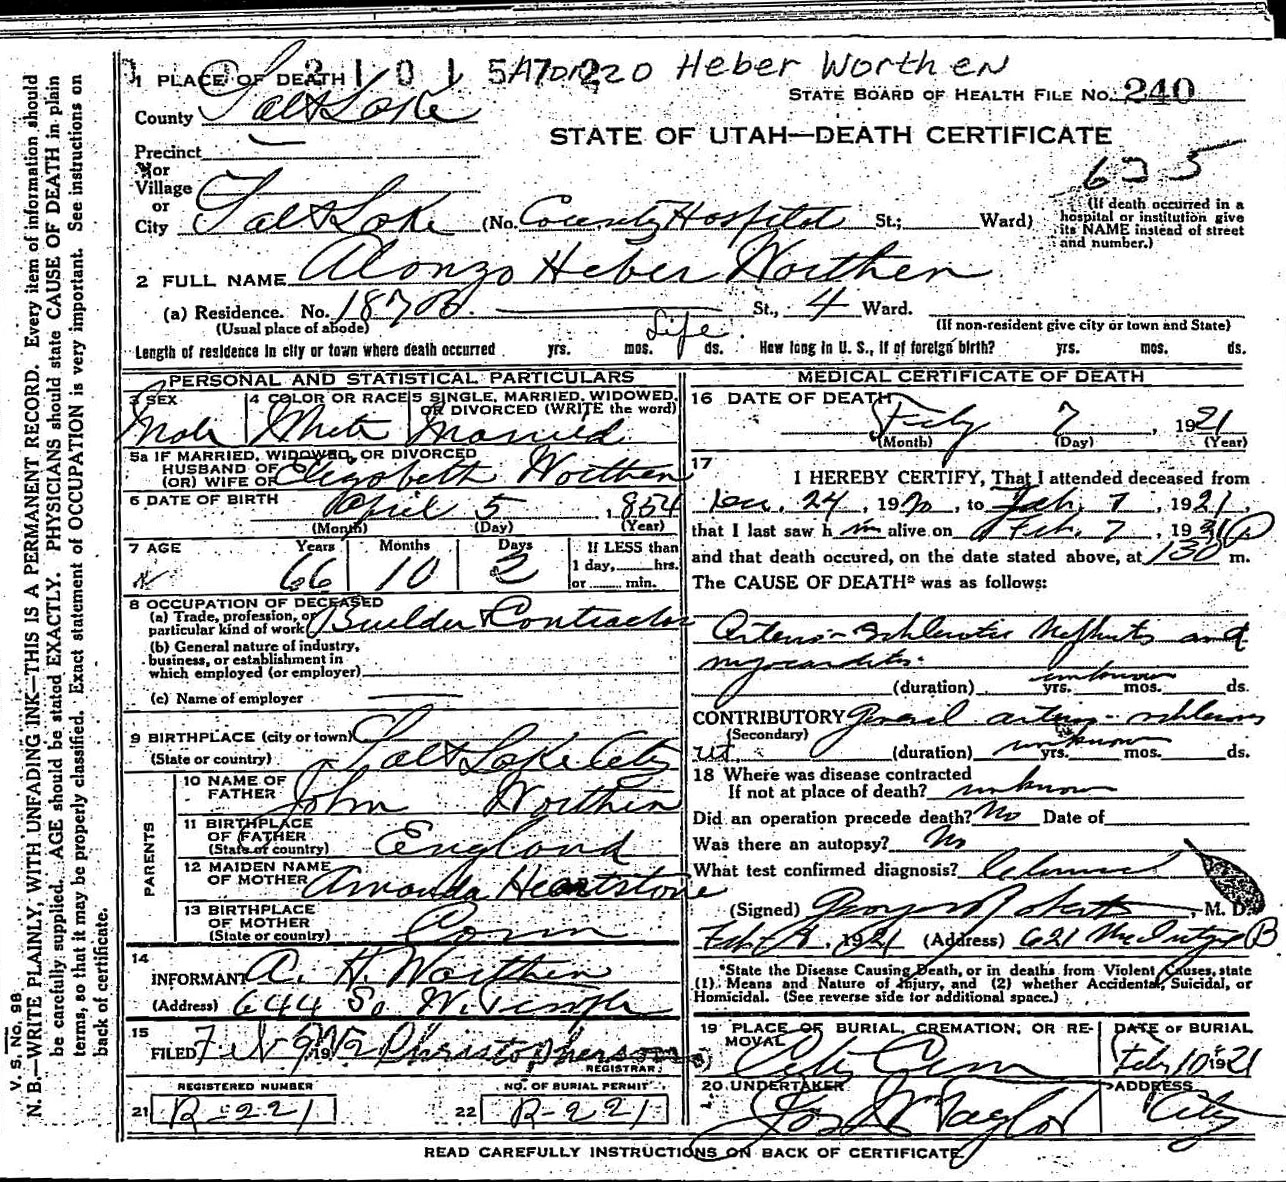 Alonzo Heber Worthen
1 PLACE OF DEATH 2101572
STATE BOARD OF HEALTH FILE NO. 240
County Salt Lake
STATE OF UTAH—DEATH CERTIFICATE
Precinct
or
Village
635
or
City Salt Lake (No. County Hospital St.; Ward)
(If death occurred in a
hospital or institution give
its NAME instead of street
and number.)
2 FULL NAME Alonzo Heber Worthen
(a) Residence. No. St., 4 Ward.
(Usual place of abode) (If non-resident give city or town and State)
Life
Length of residence in city or town where death occurred yrs. mos. ds. How long in U. S., if of foreign birth? yrs. mos. ds.
PERSONAL AND STATISTICAL PARTICULARS
3 SEX 4 COLOR OR RACE 5 SINGLE, MARRIED, WIDOWED,
OR DIVORCED (WRITE the word)
Male White Married
5a IF MARRIED, WIDOWED, OR DIVORCED
HUSBAND OF
(OR) WIFE OF Elizabeth Worthen
6 DATE OF BIRTH April 5 1854
(Month) (Day) (Year)
7 AGE Years Months Days If LESS than
1 day, hrs.
66 10 2 or min.
8 OCCUPATION OF DECEASED
(a) Trade, profession, or
particular kind of work Builder & Contractor
(b) General nature of industry,
business, or establishment in
which employed (or employer)
(c) Name of employer
9 BIRTHPLACE (city or town)
(State or country) Salt Lake City
PARENTS
10 NAME OF
FATHER John Worthen
11 BIRTHPLACE
OF FATHER
(State of country) England
12 MAIDEN NAME
OF MOTHER Amanda Heartstone
13 BIRTHPLACE
OF MOTHER
(State or country) Conn
14
INFORMANT A. H. Worthen
(Address) 644 So W. Temple
15
FILED Feb 9 19 Christopherson
REGISTRAR
REGISTERED NUMBER NO. OF BURIAL PERMIT
21 R-221 22 R-221
MEDICAL CERTIFICATE OF DEATH
16 DATE OF DEATH
Feby 7, 1921
(Month) (Day) (Year)
17
I HEREBY CERTIFY, That I attended deceased from
Dec. 24, 1920, to Feb. 7, 1921
that I last saw h m alive on Feb. 7, 1921
and that death occured, on the date stated above, at 130 P m.
The CAUSE OF DEATH* was as follows:
Arterio-schlerotic Nephritis and
myocarditis.
(duration) unknown yrs. mos. ds.
CONTRIBUTORY General arterio-schlerosis
(Secondary)
(duration) unknown yrs. mos. ds.
18 Where was disease contracted
If not at place of death? unknown
Did an operation precede death? No Date of
Was there an autopsy? No
What test confirmed diagnosis? Clinical
(Signed) George Roberts, M. D.
Feb, 8, 1921 (Address) 621 McIntyre B
*State the Disease Causing Death, or in deaths from Violent Causes, state
(1). Means and Nature of Injury, and (2) whether Accidental, Suicidal, or
Homicidal. (See reverse side for additional space.)
19 PLACE OF BURIAL, CREMATION, OR RE-
MOVAL City Cem
DATE OF BURIAL
Feby 10 1921
20 UNDERTAKER Jos Wm Taylor
ADDRESS City
READ CAREFULLY INSTRUCTIONS ON BACK OF CERTIFICATE
V. S. No. 98
N. B.—WRITE PLAINLY, WITH UNFADING INK—THIS IS A PERMANENT RECORD. Every item of information should
be carefully supplied. AGE should be stated EXACTLY. PHYSICIANS should state CAUSE OF DEATH in plain
terms, so that it may be properly classified. Exact statement of OCCUPATION is very important. See instructions on
back of certificate.